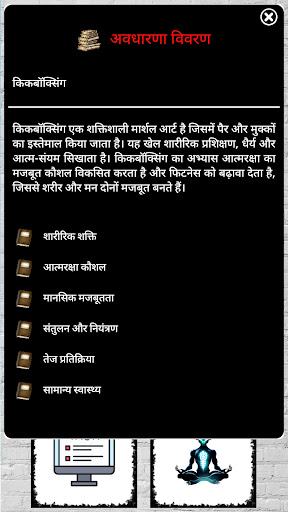 अवधारणा विवरण
किकबॉक्सिंग
किकबॉक्सिंग एक शक्तिशाली मार्शल आर्ट है जिसमें पैर और मुक्कों
का इस्तेमाल किया जाता है। यह खेल शारीरिक प्रशिक्षण, धैर्य और
आत्म-संयम सिखाता है। किकबॉक्सिंग का अभ्यास आत्मरक्षा का
मजबूत कौशल विकसित करता है और फिटनेस को बढ़ावा देता है,
जिससे शरीर और मन दोनों मजबूत बनते हैं।
शारीरिक शक्ति
आत्मरक्षा कौशल
मानसिक मजबूतता
संतुलन और नियंत्रण
तेज प्रतिक्रिया
सामान्य स्वास्थ्य